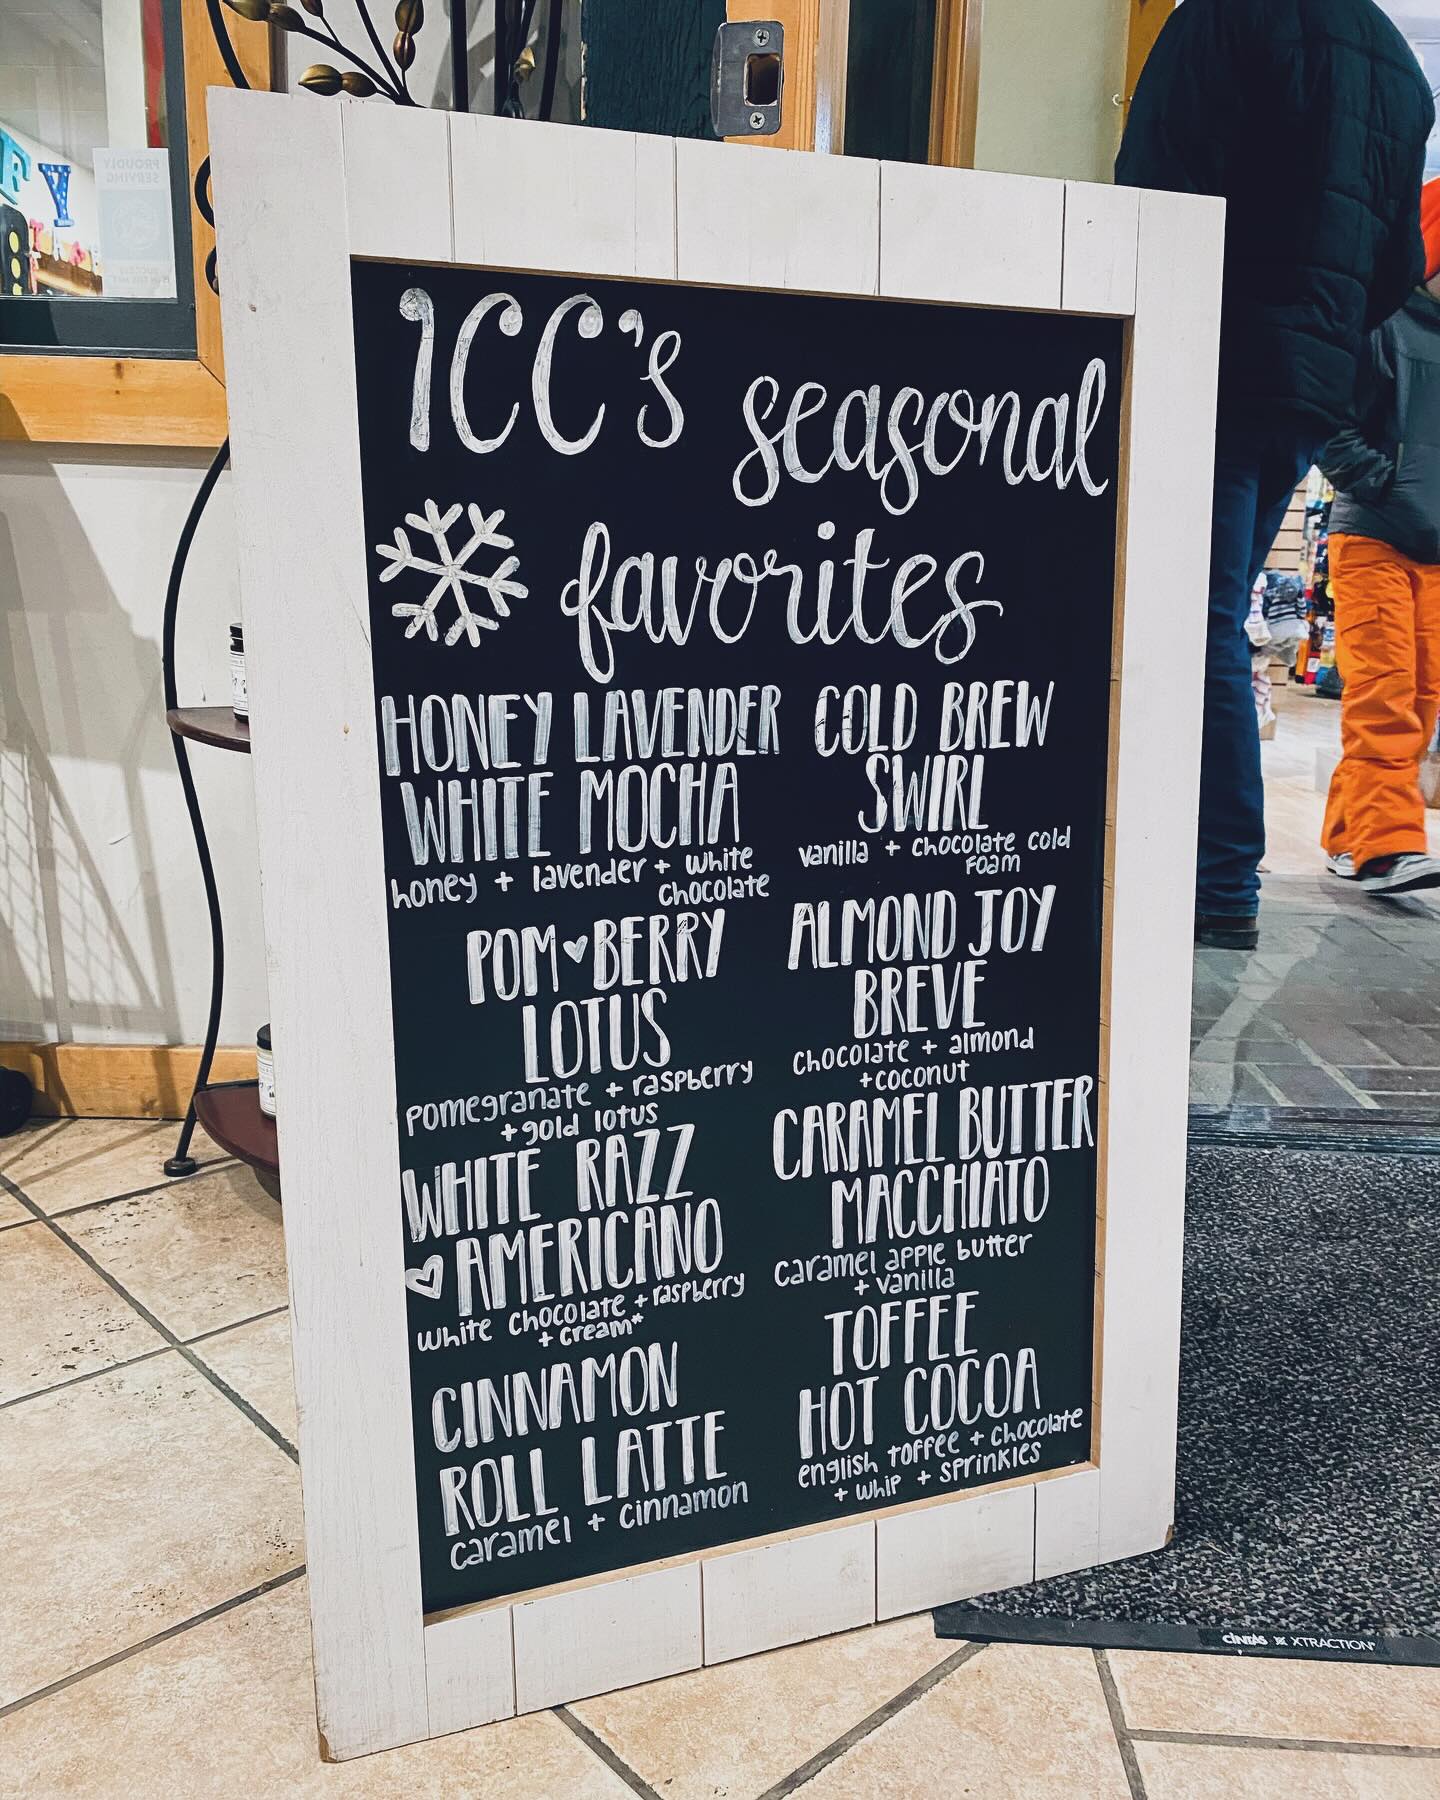 ICC's seasonal
favorites
HONEY LAVENDER
WHITE MOCHA
honey + lavender + white
chocolate
POM BERRY
LOTUS
pomegranate + raspberry
+ gold lotus
WHITE RAZZ
AMERICANO
white chocolate + raspberry
+ cream*
CINNAMON
ROLL LATTE
caramel + cinnamon
COLD BREW
SWIRL
vanilla + chocolate cold
foam
ALMOND JOY
BREVE
chocolate + almond
+ coconut
CARAMEL BUTTER
MACCHIATO
caramel apple butter
+ vanilla
TOFFEE
HOT COCOA
english toffee + chocolate
+ whip + sprinkles
PROUDLY
SERVING
F Y
CINTAS XTRACTION